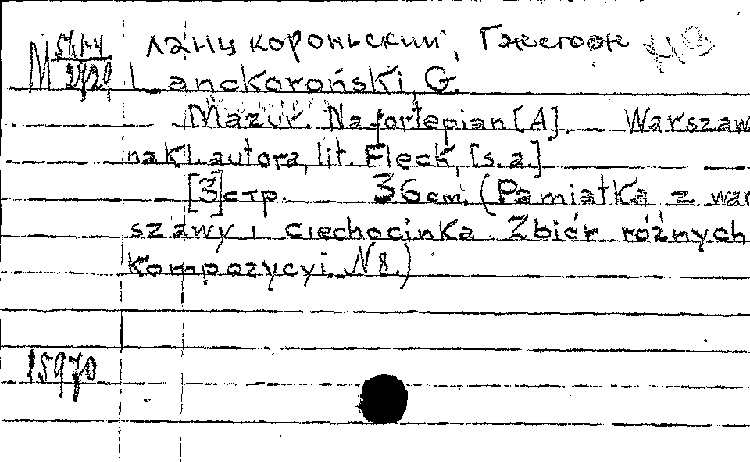 Ланцкороньский, Гжегорж
М 2420 Lanckoroński, G.
Mazur. Na fortepian [A]. Warszawa
nakł. autora, lit. Fleck, [s.a.]
[3] стр. 36 cm. (Pamiątka z War
szawy i Ciechocinka. Zbiór różnych
Kompozycyi. N 8.)
15970